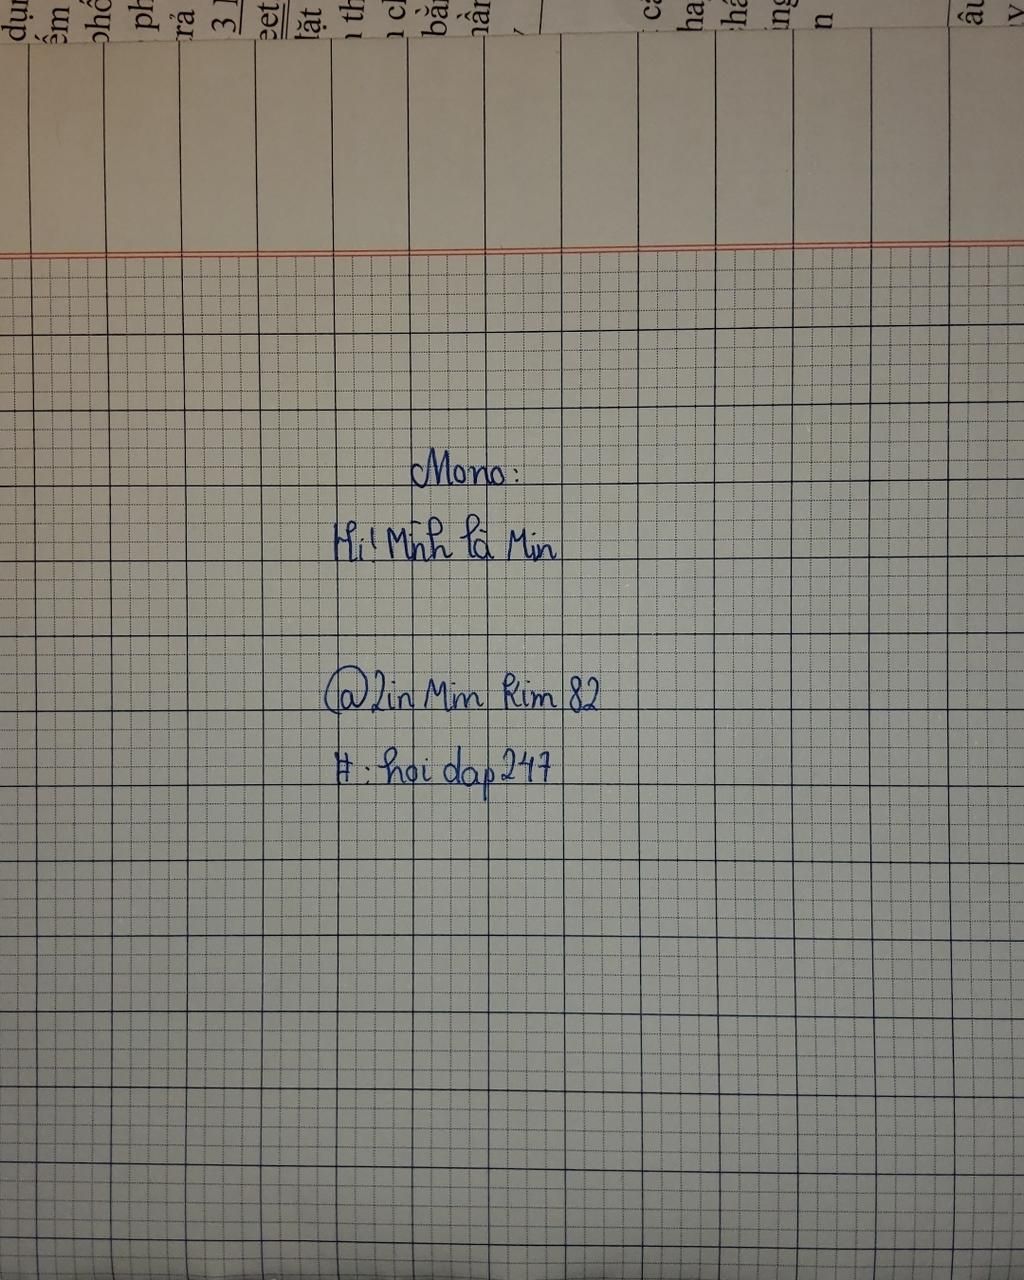 Mono:
Hi! Mình là Min
@ Lin Min Kim 82
#: hoi dap 247